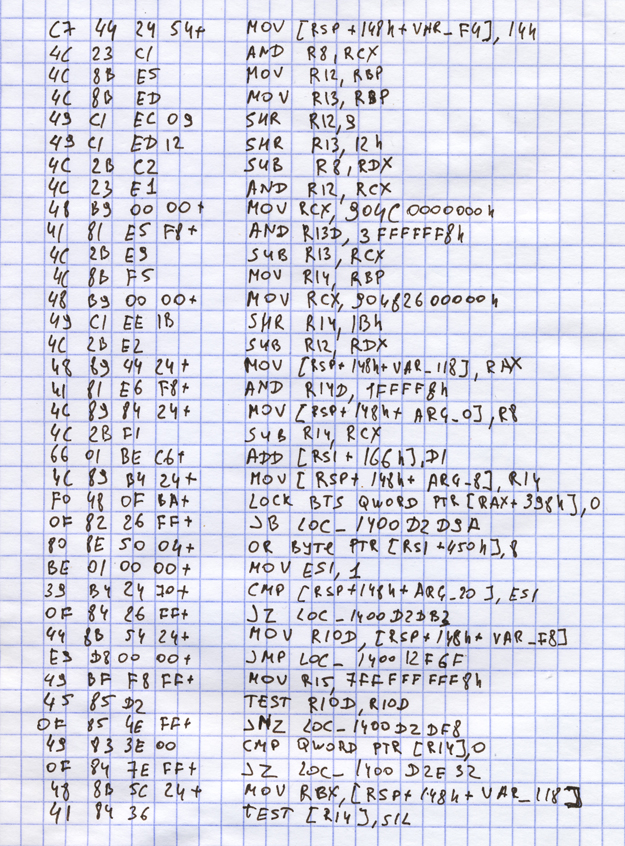 C7 44 24 54+ MOV [RSP+148h+VAR_F4], 14h
4C 23 C1 AND R8, RCX
4C 8B E5 MOV R12, RBP
4C 8B ED MOV R13, RBP
49 C1 EC 09 SHR R12, 9
49 C1 ED 12 SHR R13, 12h
4C 2B C2 SUB R8, RDX
4C 23 E1 AND R12, RCX
48 B9 00 00+ MOV RCX, 904C0000000h
41 81 E5 F8+ AND R13D, 3FFFFFF8h
4C 2B E9 SUB R13, RCX
4C 8B F5 MOV R14, RBP
48 B9 00 00+ MOV RCX, 90482600000h
49 C1 EE 1B SHR R14, 1Bh
4C 2B E2 SUB R12, RDX
48 89 44 24+ MOV [RSP+148h+VAR_118], RAX
41 81 E6 F8+ AND R14D, 1FFFF8h
4C 89 84 24+ MOV [RSP+148h+ARG_0], R8
4C 2B F1 SUB R14, RCX
66 01 BE C6+ ADD [RSI+166h], DI
4C 89 B4 24+ MOV [RSP+148h+ARG_8], R14
F0 48 0F BA+ LOCK BTS QWORD PTR [RAX+398h], 0
0F 82 26 FF+ JB LOC_1400D2D9A
80 8E 50 04+ OR BYTE PTR [RSI+450h], 8
BE 01 00 00+ MOV ESI, 1
39 B4 24 70+ CMP [RSP+148h+ARG_20], ESI
0F 84 26 FF+ JZ LOC_1400D2DB2
44 8B 54 24+ MOV R10D, [RSP+148h+VAR_F8]
E9 D8 00 00+ JMP LOC_140012F6F
49 BF F8 FF+ MOV R15, 7FFFFFFFF8h
45 85 D2 TEST R10D, R10D
0F 85 4E FF+ JNZ LOC_1400D2DF8
49 83 3E 00 CMP QWORD PTR [R14], 0
0F 84 7E FF+ JZ LOC_1400D2E32
48 8B 5C 24+ MOV RBX, [RSP+148h+VAR_118]
41 84 36 TEST [R14], SIL